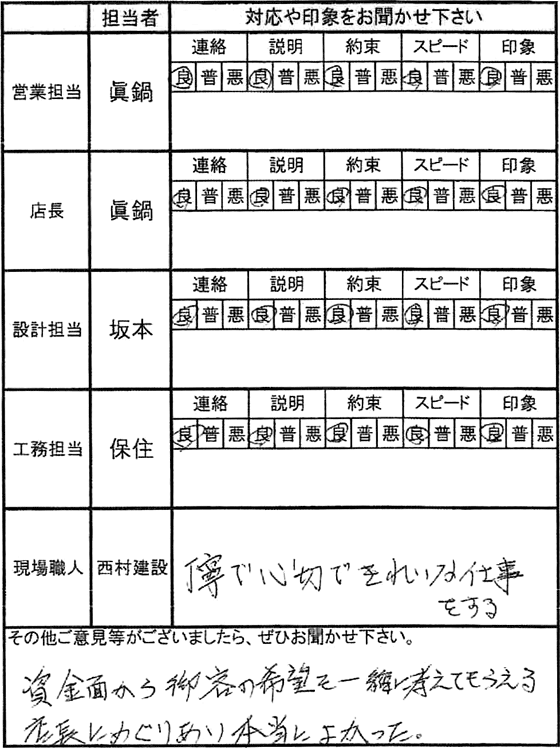 担当者 対応や印象をお聞かせ下さい
営業担当 眞鍋
連絡 説明 約束 スピード 印象
良 普 悪 良 普 悪 良 普 悪 良 普 悪 良 普 悪
店長 眞鍋
連絡 説明 約束 スピード 印象
良 普 悪 良 普 悪 良 普 悪 良 普 悪 良 普 悪
設計担当 坂本
連絡 説明 約束 スピード 印象
良 普 悪 良 普 悪 良 普 悪 良 普 悪 良 普 悪
工務担当 保住
連絡 説明 約束 スピード 印象
良 普 悪 良 普 悪 良 普 悪 良 普 悪 良 普 悪
現場職人 西村建設
寧で心切できれいな仕事
をする
その他ご意見等がございましたら、ぜひお聞かせ下さい。
資金面から御客の希望を一緒に考えてもらえる
店長にめぐりあり本当によかった。